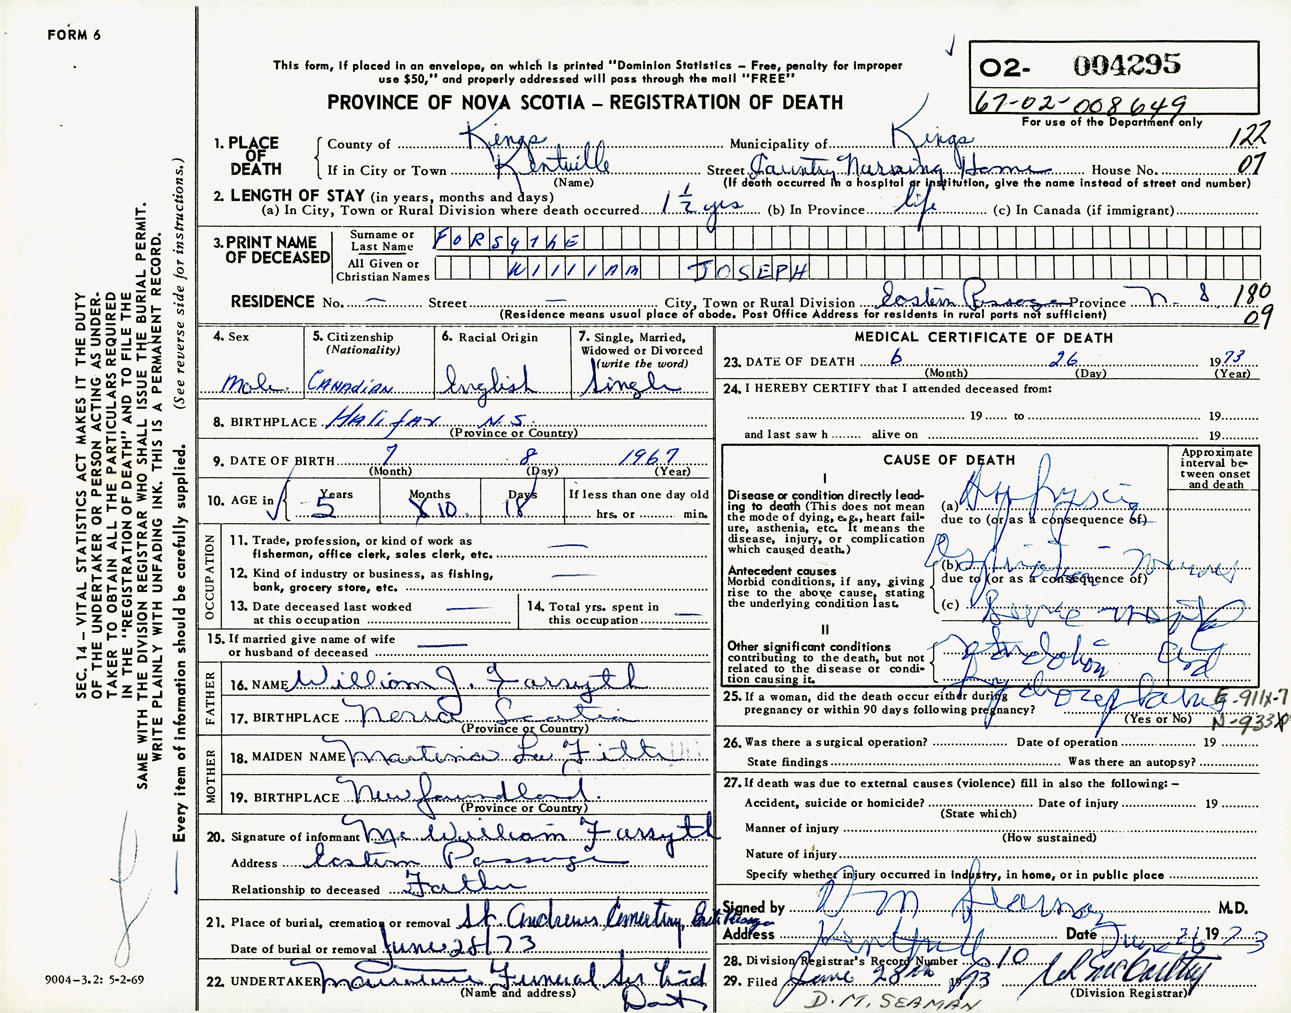 FORM 6
This form, if placed in an envelope, on which is printed "Dominion Statistics — Free, penalty for improper
use $50," and properly addressed will pass through the mail "FREE"
PROVINCE OF NOVA SCOTIA — REGISTRATION OF DEATH
O2- 004295
67-02-008649
For use of the Department only
1. PLACE OF DEATH
County of Kings Municipality of Kings 122
If in City or Town Kentville Street Country Nursing Home House No. 07
(Name) (If death occurred in a hospital or institution, give the name instead of street and number)
2. LENGTH OF STAY (in years, months and days)
(a) In City, Town or Rural Division where death occurred 1 1/2 yrs (b) In Province life (c) In Canada (if immigrant)
3. PRINT NAME OF DECEASED
Surname or Last Name FORSYTHE
All Given or Christian Names WILLIAM JOSEPH
RESIDENCE No. — Street — City, Town or Rural Division Eastern Passage Province N.S 180
(Residence means usual place of abode. Post Office Address for residents in rural parts not sufficient) 09
4. Sex Male
5. Citizenship (Nationality) CANADIAN
6. Racial Origin English
7. Single, Married, Widowed or Divorced (write the word) Single
8. BIRTHPLACE Halifax N.S.
(Province or Country)
9. DATE OF BIRTH 7 8 1967
(Month) (Day) (Year)
10. AGE in Years 5 Months 10 Days 18 If less than one day old
hrs. or min.
OCCUPATION
11. Trade, profession, or kind of work as —
fisherman, office clerk, sales clerk, etc.
12. Kind of industry or business, as fishing, —
bank, grocery store, etc.
13. Date deceased last worked at this occupation —
14. Total yrs. spent in this occupation —
15. If married give name of wife
or husband of deceased —
FATHER
16. NAME William J. Forsyth
17. BIRTHPLACE Nova Scotia
(Province or Country)
MOTHER
18. MAIDEN NAME
19. BIRTHPLACE Newfoundland.
(Province or Country)
20. Signature of informant Mr William Forsyth
Address Eastern Passage
Relationship to deceased Father
21. Place of burial, cremation or removal St. Andrews Cemetery, East. Passage
Date of burial or removal June 28/73
22. UNDERTAKER Funeral Ser Ltd
(Name and address) Dart
MEDICAL CERTIFICATE OF DEATH
23. DATE OF DEATH 6 26 1973
(Month) (Day) (Year)
24. I HEREBY CERTIFY that I attended deceased from:
19 to 19
and last saw h alive on 19
CAUSE OF DEATH
Approximate interval between onset and death
I
Disease or condition directly leading to death (This does not mean the mode of dying, e.g., heart failure, asthenia, etc. It means the disease, injury, or complication which caused death.)
(a) Asphyxia
due to (or as a consequence of)
Antecedent causes
Morbid conditions, if any, giving rise to the above cause, stating the underlying condition last.
(b) Aspiration
due to (or as a consequence of)
(c) Severe
II
Other significant conditions contributing to the death, but not related to the disease or condition causing it.
and
Hydrocephalus
E-911X-7
25. If a woman, did the death occur either during
pregnancy or within 90 days following pregnancy?
(Yes or No) N-933X
26. Was there a surgical operation? Date of operation 19
State findings Was there an autopsy?
27. If death was due to external causes (violence) fill in also the following: —
Accident, suicide or homicide? Date of injury 19
(State which)
Manner of injury
(How sustained)
Nature of injury
Specify whether injury occurred in industry, in home, or in public place
Signed by D M Seaman M.D.
Address Kentville Date June 26 1973
28. Division Registrar's Record Number 10
29. Filed June 28th 1973
(Division Registrar)
D.M. SEAMAN
SEC. 14 — VITAL STATISTICS ACT MAKES IT THE DUTY
OF THE UNDERTAKER OR PERSON ACTING AS UNDER-
TAKER TO OBTAIN ALL THE PARTICULARS REQUIRED
IN THE "REGISTRATION OF DEATH" AND TO FILE THE
SAME WITH THE DIVISION REGISTRAR WHO SHALL ISSUE THE BURIAL PERMIT.
WRITE PLAINLY WITH UNFADING INK. THIS IS A PERMANENT RECORD.
Every item of information should be carefully supplied. (See reverse side for instructions.)
9004-3.2: 5-2-69